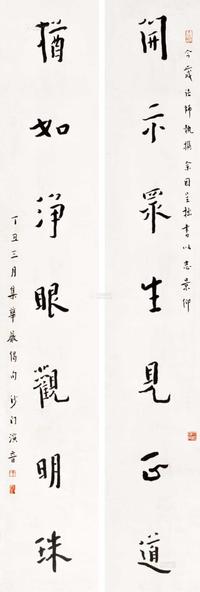 法師撰余因呈拙書以志景仰
開示眾生見正道
猶如淨眼觀明珠
丁丑三月集華嚴偈句沙門演音